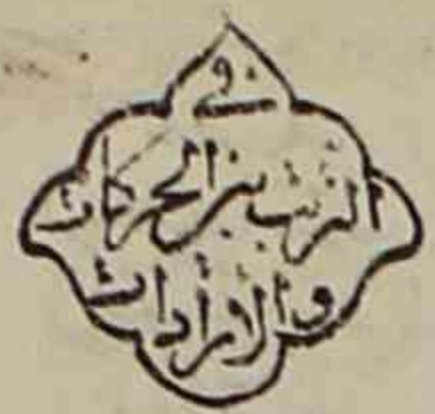 في
الترتيب بين الحركات
والارادات